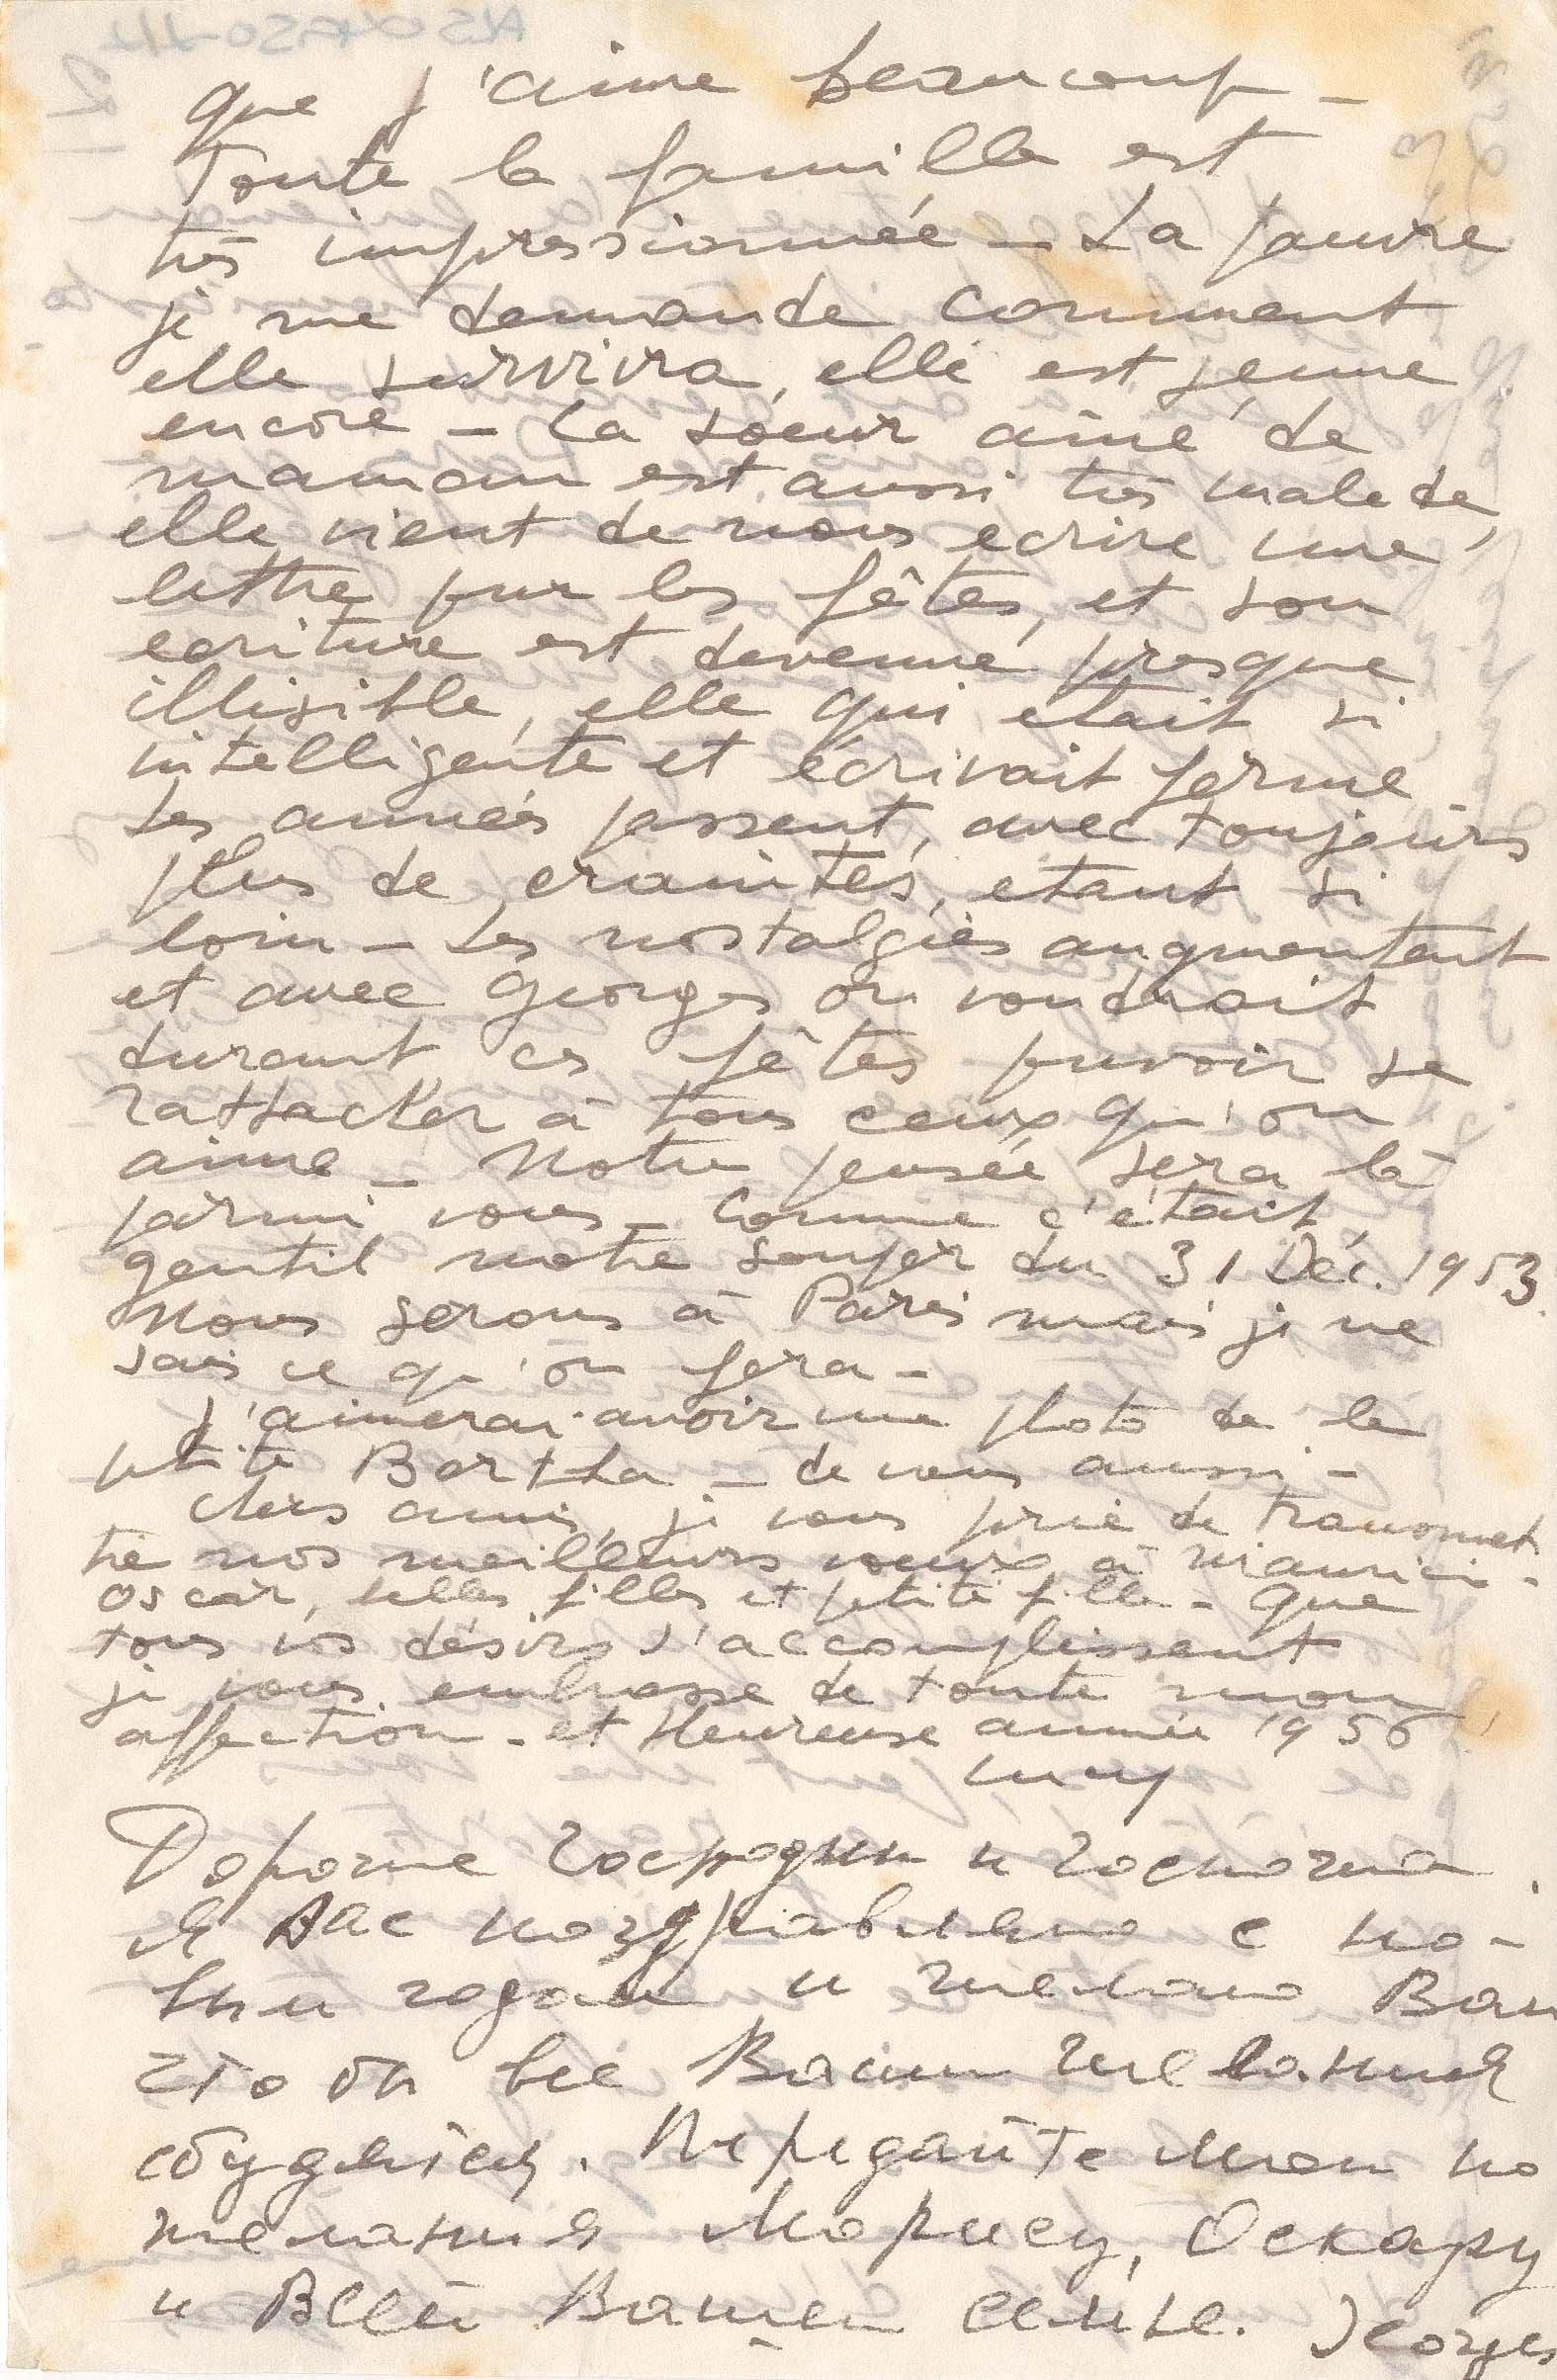 que j'aime beaucoup -
Toute la famille est
très impressionnée - La pauvre
je me demande comment
elle survivra, elle est jeune
encore - La soeur ainé de
maman est aussi très malade,
elle vient de nous ecrire une
lettre pour les fêtes, et son
ecriture est devenue presque
illisible, elle qui etait si
intelligente et écrivait ferme.
Les années passent, avec toujours
plus de craintes, etant si
loin - Les nostalgies augmentent
et avec Georges on voudrait
durant ces fêtes pouvoir se
rattacher à tous ceux qu'on
aime - Notre pensée sera là
parmi vous - Comme c'était
gentil notre souper du 31 Déc. 1953.
Nous serons à Paris mais je ne
sais ce qu'on fera -
J'aimerai avoir une photo de la
petite Bertha - de vous aussi -
Chers amis, je vous prie de transmet
tre nos meilleurs voeux à
Oscar, belles filles et petite fille - que
tous vos désirs s'accomplissent
je vous embrasse de toute mon
affection - et Heureuse année 1956
Дорогие господин и госпожа.
Я Вас поздравляю с но-
вым годом и желаю Вам
что бы все Ваши желания
сбудятся. Передайте мои по
желания Морису, Оскару
и Всей Вашей семье. Georges